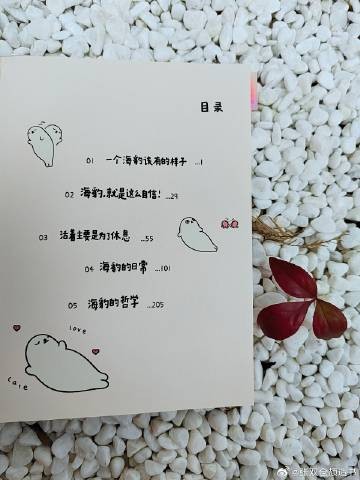 目录
01 一个海豹该有的样子 ...1
02 海豹,就是这么自信! ...29
03 活着主要是为了休息 ...55
04 海豹的日常 ...101
05 海豹的哲学 ...205
love
care